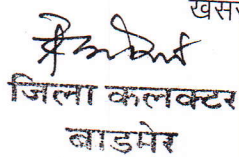 खसर
जिला कलक्टर
बाडमेर